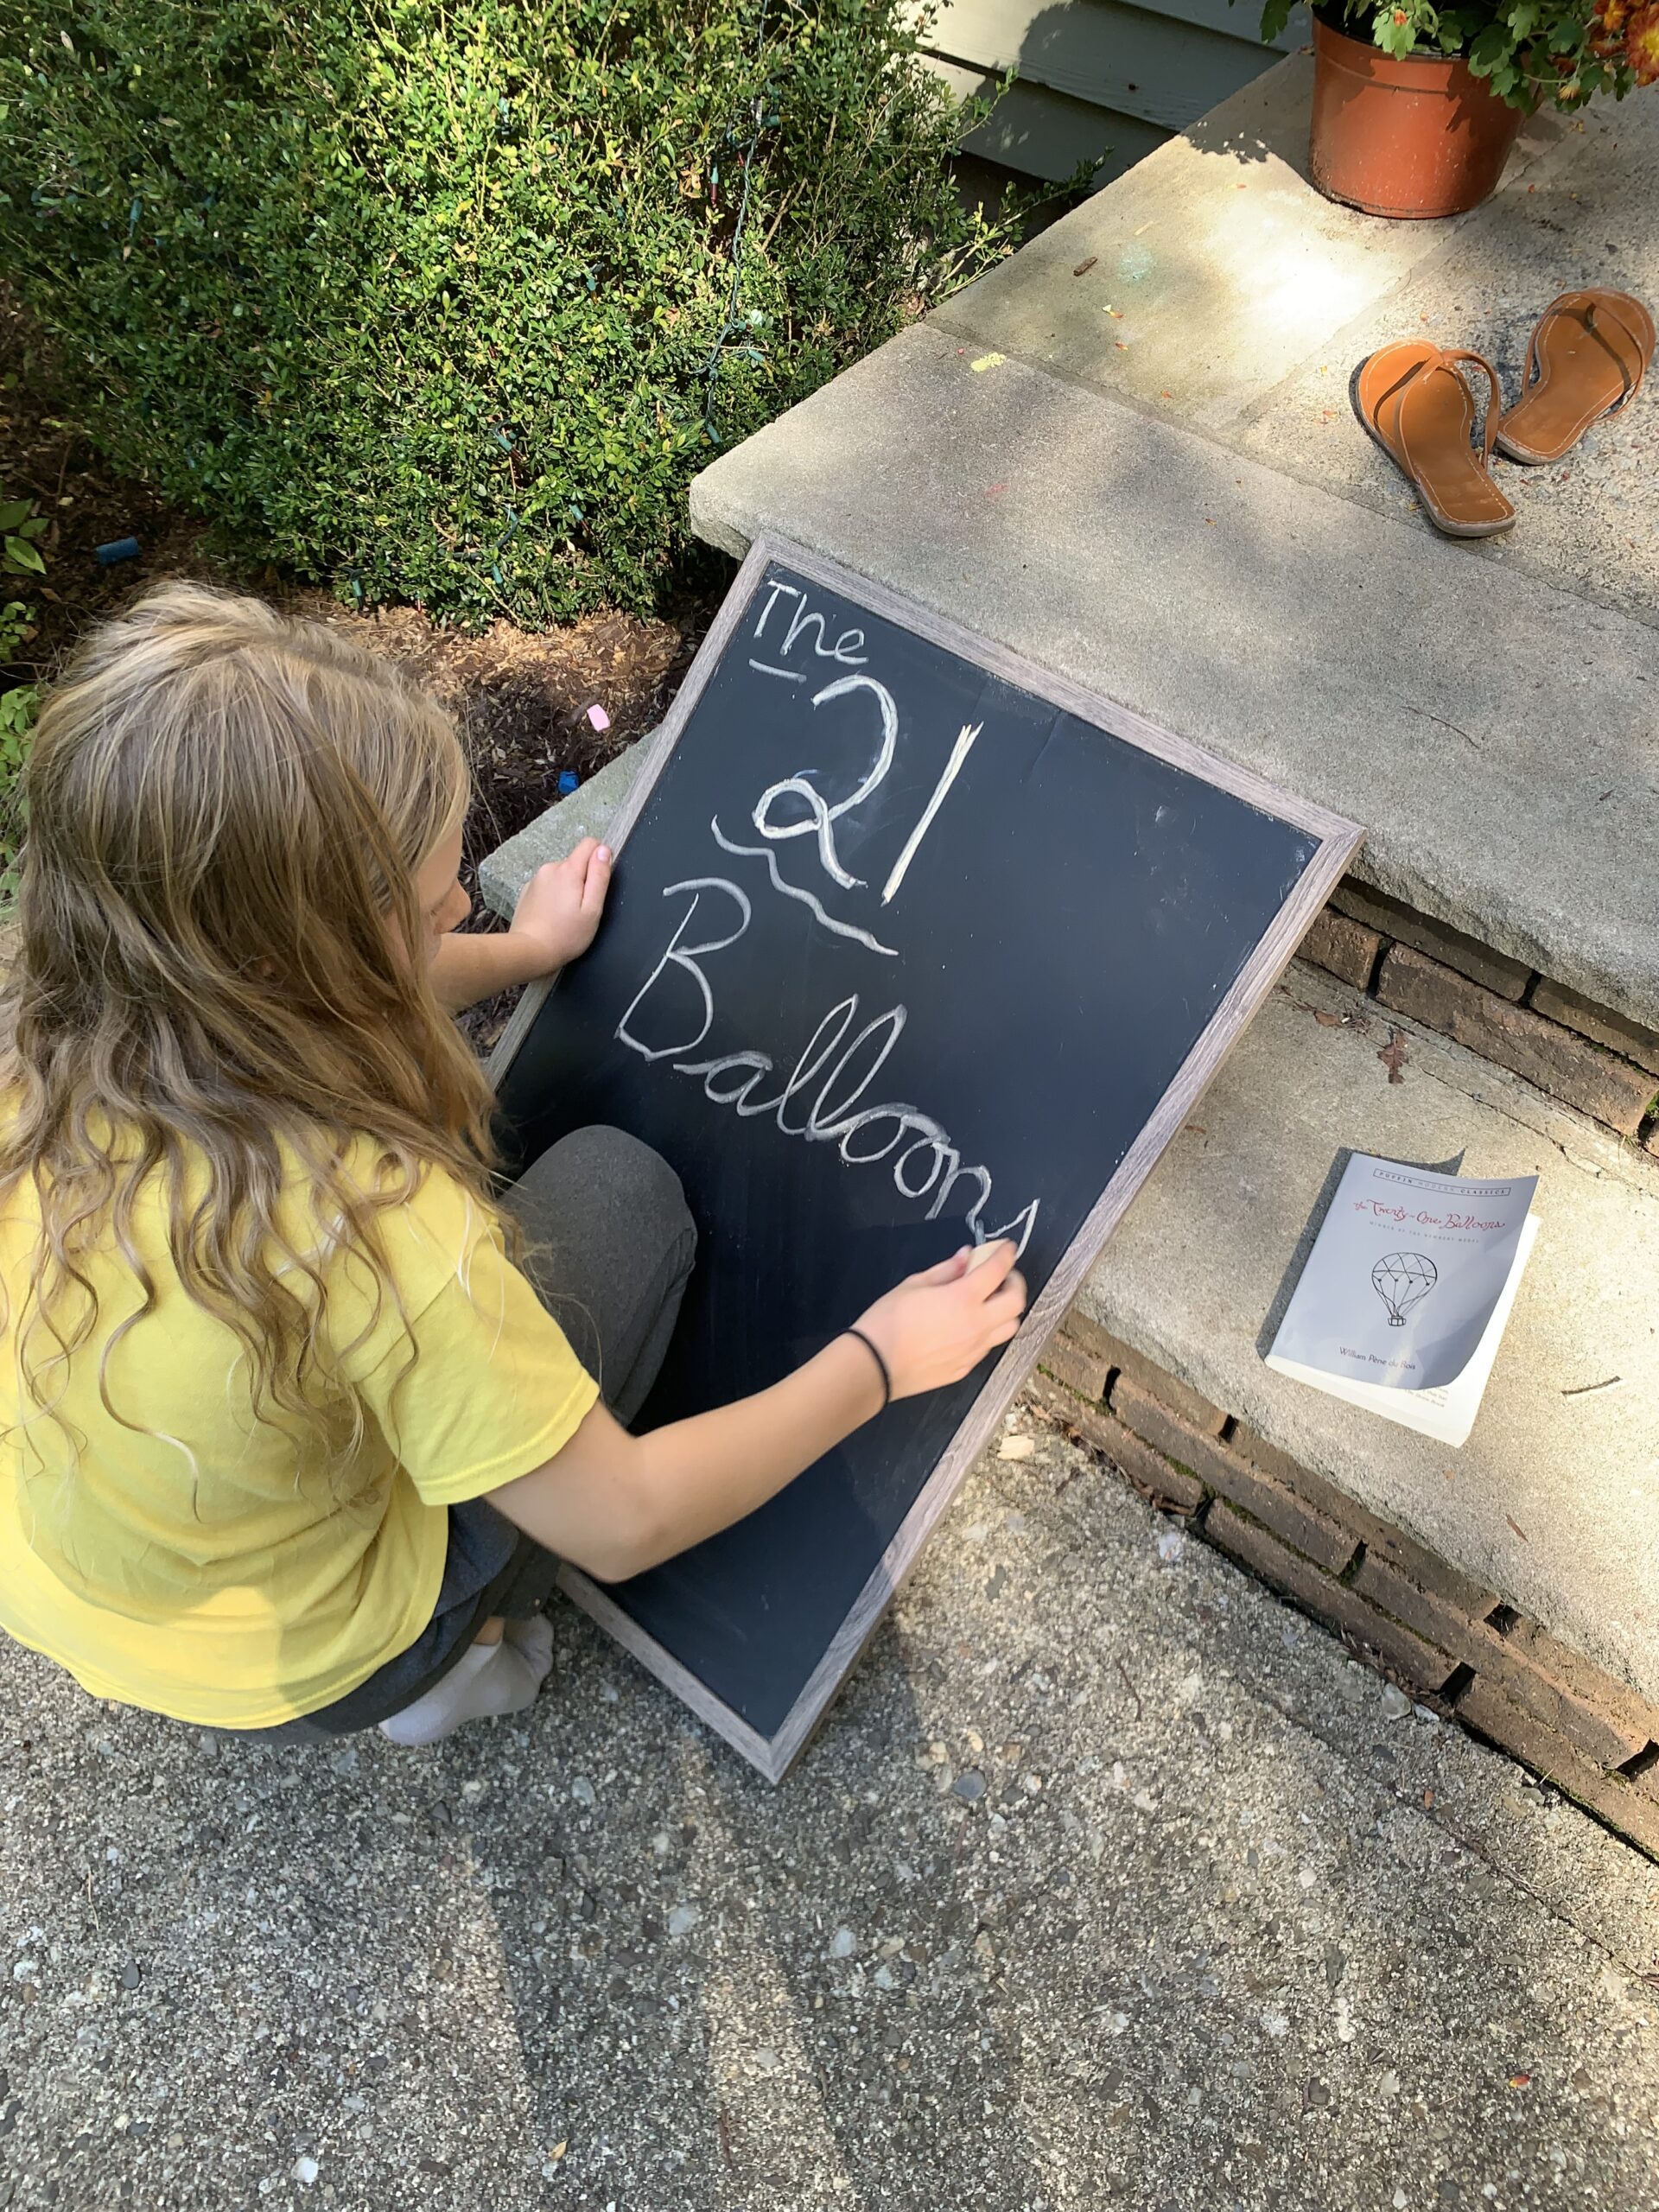 The
21
Balloons
PUFFIN MODERN CLASSICS
The Twenty-One Balloons
WINNER OF THE NEWBERY MEDAL
William Pène du Bois